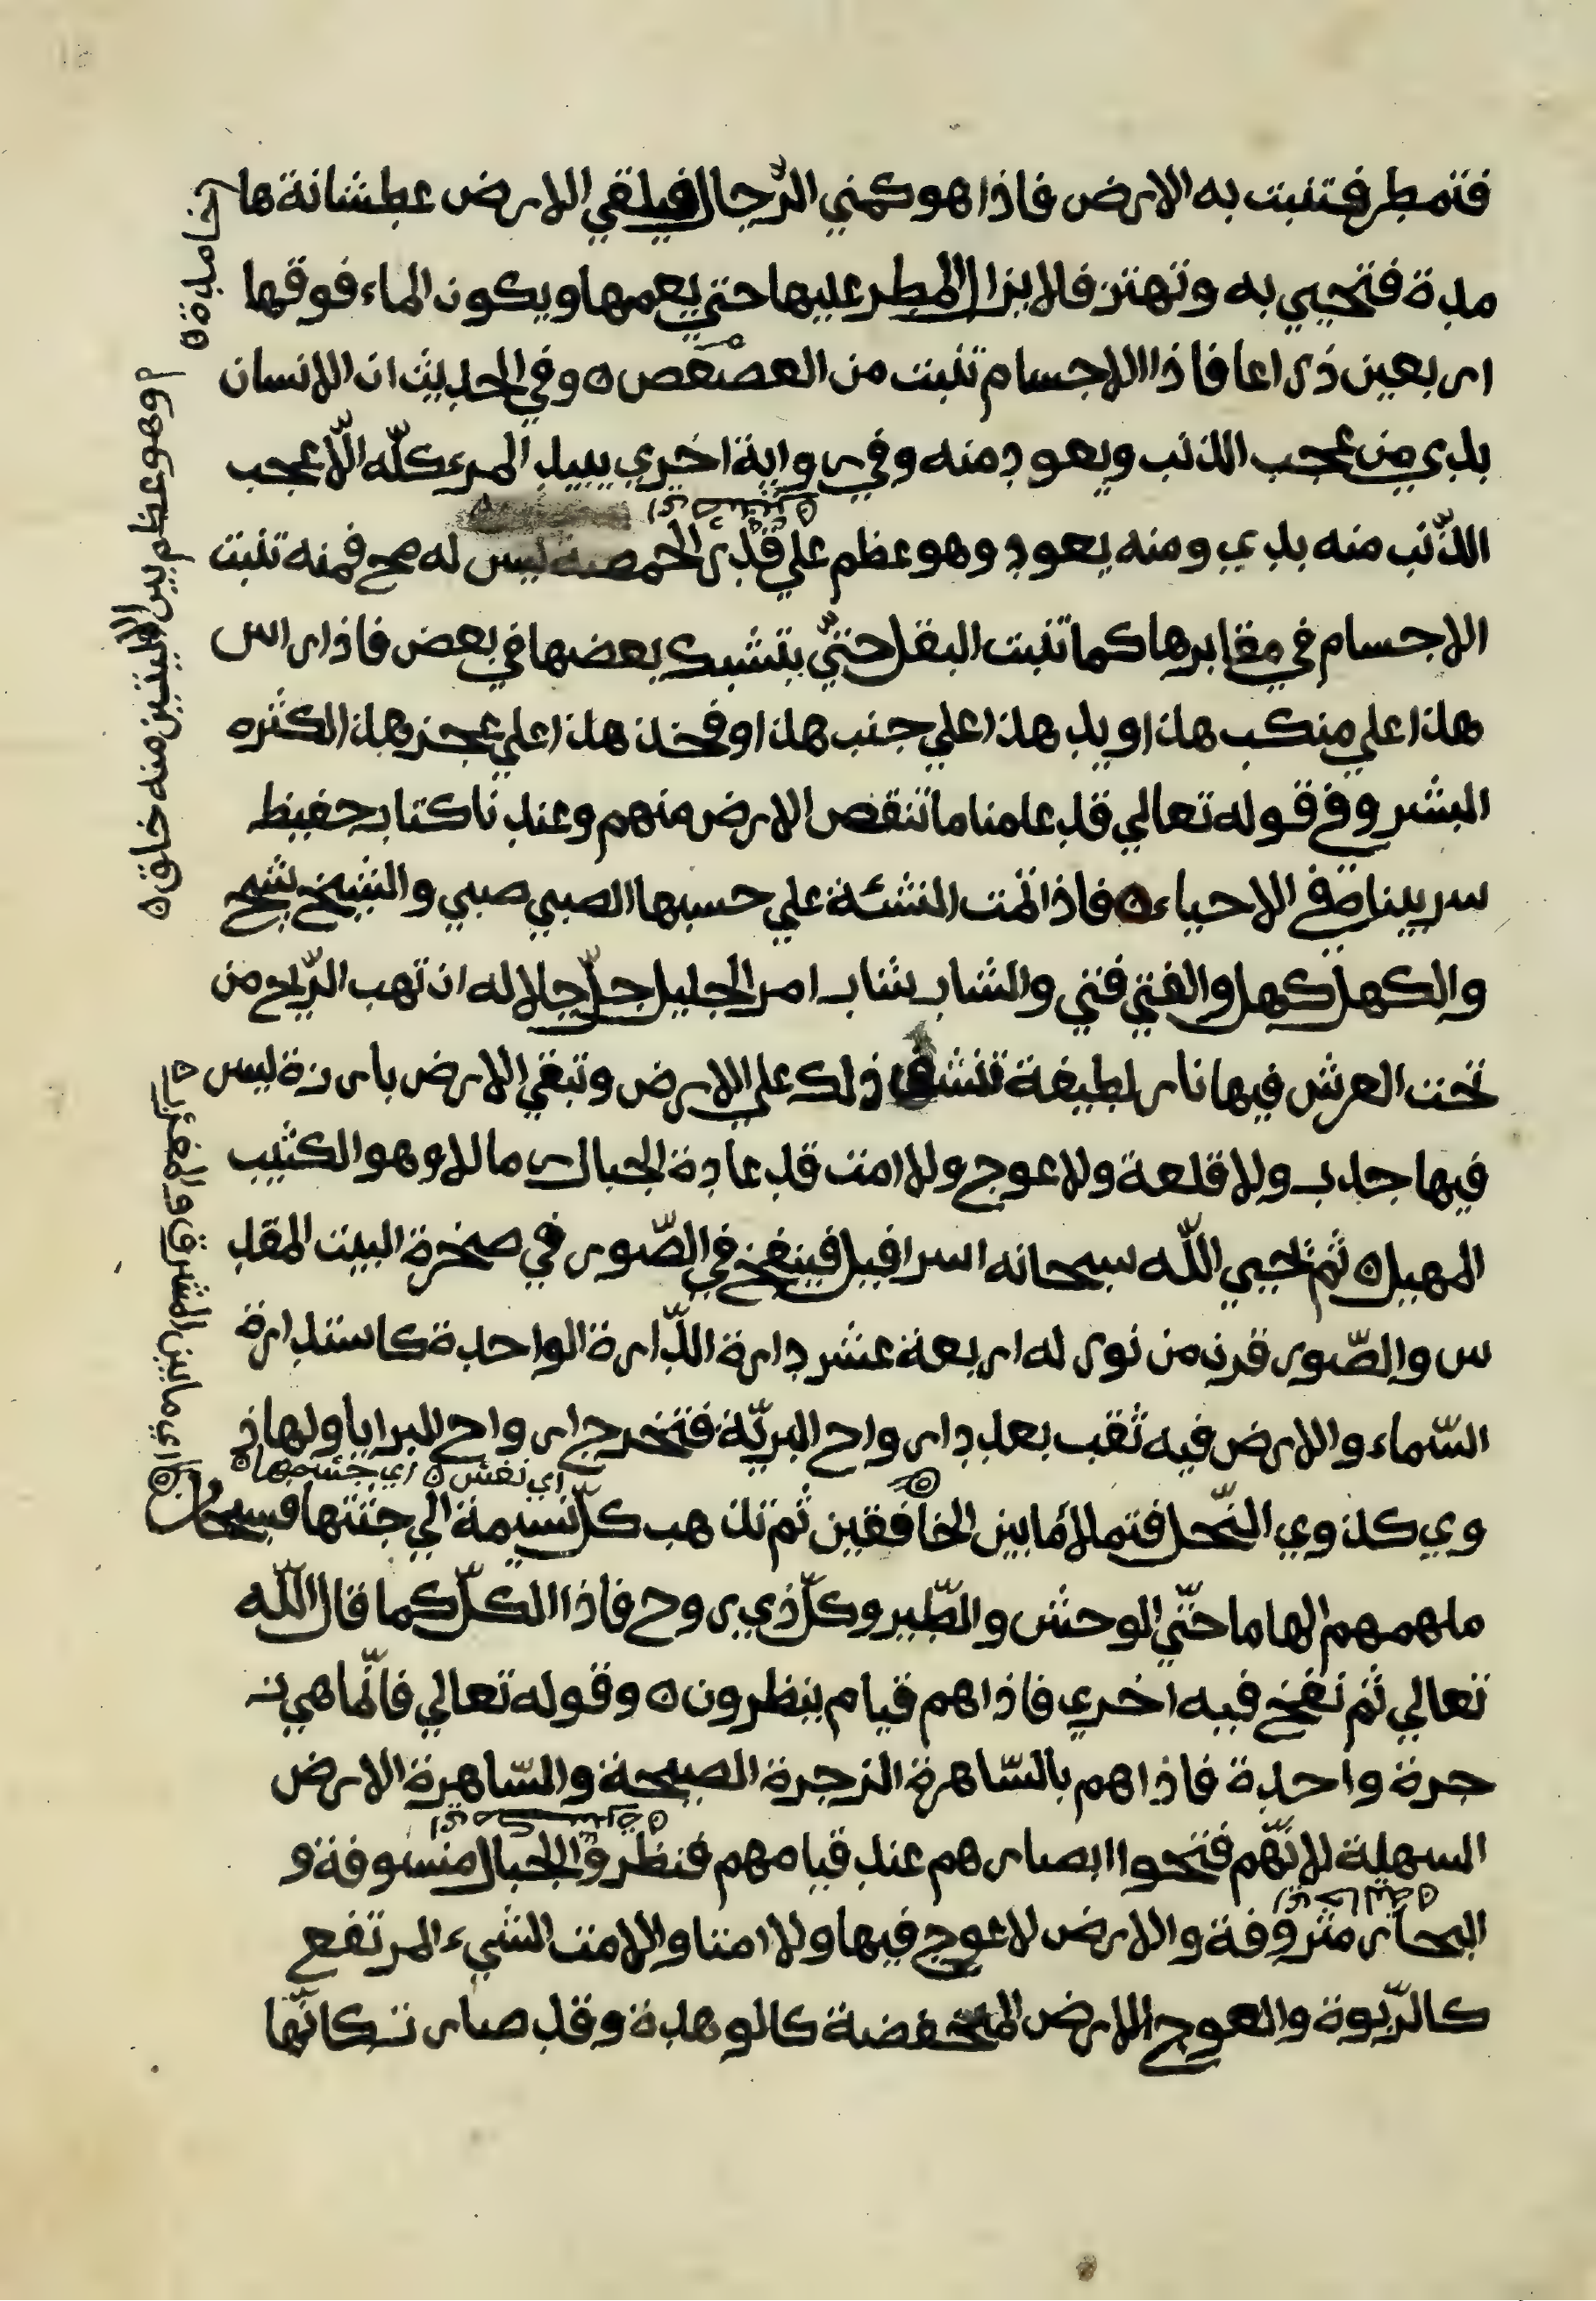 فتمطر فتنبت به الارض فاذا هو كمني الرّجال فيلقي الارض عطشانة ها
مدة فتحيي به وتهتز فلا يزال المطر عليها حتي يعمها ويكون الماء فوقها
اربعين ذراعا فاذا الاجسام تنبت من العصعص ه وفي الحديث ان الانسان
بدي من عجب الذنب ويعود منه وفي رواية اخري يبيد المرء كلّه الّا عجب
الذّنب منه بدي ومنه يعود وهو عظم علي قدر الحمصة ليس له مح فمنه تنبت
الاجسام في مقابرها كما تنبت البقل حتيّ يتشبك بعضها في بعض فاذا راس
هذا علي منكب هذا ويد هذا علي جنب هذا وفخذ هذا علي عجز هذا لكثره
البشر وفي قوله تعالي قد علمنا ما تنقص الارض منهم وعندنا كتاب حفيظ
سر بيناه في الاحياء ه فاذا تمت النشئة علي حسبها الصبي صبي والشيخ شيخ
والكهل كهل والفتي فتي والشاب شاب امر الجليل جلّ جلاله ان تهب الرّيح من
تحت العرش فيها نار لطيفة تنشف ذلك علي الارض وتبقي الارض بارزة ليس
فيها حدب ولا قلعة ولا عوج ولا امت قد عادة الجبال رمالا وهو الكثيب
المهيل ه ثم يحيي اللّه سبحانه اسرافيل فينفخ في الصّور في صخرة البيت المقد
س والصّور قرن من نور له اربعة عشر دارة الدّارة الواحدة كاستدارة
السّماء والارض فيه ثقب بعدد ارواح البريّة فتخرج ارواح البرايا ولها د
اي نفس ه اي جثتها ه
وي كدوي النّحل فتملأ ما بين الخافقين ثم تذهب كلّ نسيمة الي جثتها فسبحان
ملهمهم الهاما حتّي الوحش والطّير وكلّ ذي روح فاذا الكلّ كما قال اللّه
تعالي ثم نفخ فيه اخري فاذا هم قيام ينظرون ه وقوله تعالي فانّما هي ز
جرة واحدة فاذا هم بالسّاهرة الزجرة الصيحة والسّاهرة الارض
السهلة لانّهم فتحوا ابصارهم عند قيامهم فنظروا الجبال منسوفة و
البحار منزوفة والارض لا عوج فيها ولا امتا والامت الشيء المرتفع
كالرّبوة والعوج الارض المنخفضة كالوهدة وقد صارت كانّها
خامدة ه
وهو عظم بين الاليتين منه خلق ه
اي ما بين المشرق والمغرب ه